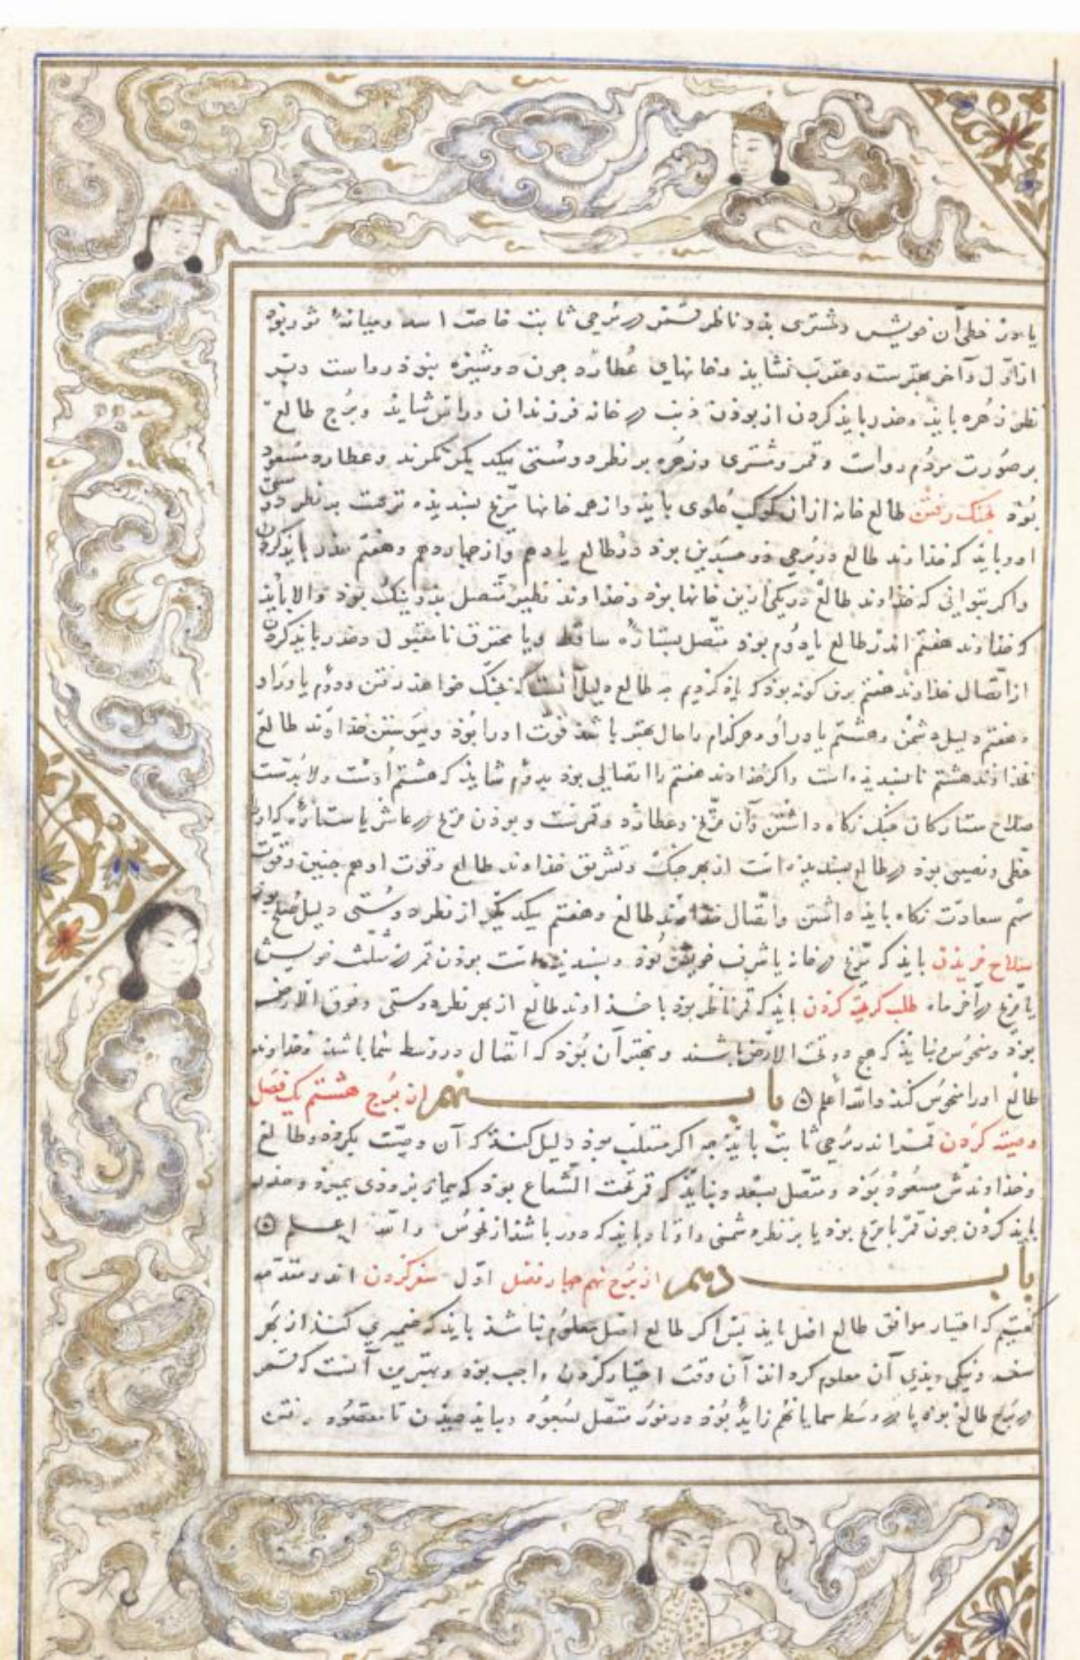 یا در حظی آن خویش و مشتری بذو ناظر قمر در برجی ثابت خاصت اسد و میانهٔ ثور بوذ
از اوّل و آخر بهترست و عقرب نشاید و خانهای عطارد چون دوشیزه بنوذ رواست و بتر
نظر زهره باید و حذر باید کردن از بوذن ذنب در خانه فرزندان و راس شاید و برج طالع
بر صورت مردم رواست و قمر و مشتری و زهره بر نظر دوستی بیکدیگر نگرند و عطارد مسعود
بوذ بجنک رفتن طالع خانه ازان کوکب علوی باید و از هر خانها مرّیخ بسندیذه تر بر نظر دوستی
او و باید که خذاوند طالع در برجی ذو جسدین بوذ در طالع یا دهم و از چهاردهم و هفتم حذر باید کردن
و اکر بتوانی که خذاوند طالع در یکی ازین خانها بوذ و خذاوند نظیر متّصل بذو نیک بوذ والا باید
که خذاوند هفتم اندر طالع یا دوم بوذ متّصل بستارهٔ ساقط و یا محترق نامقبول و حذر باید کردن
از اتّصال خذاوند هفتم برین کونه بوذ که یاذ کردیم چه طالع دلیل آنست که بجنک خواهذ رفتن و دوم یاوران او
و هفتم دلیل دشمن و هشتم یاوران او و هر کدام را حال بهتر باشذ قوّت او را بوذ و پیوستن خذاوند طالع
بخذاوند هشتم نابسندیذه است و اکر خذاوند هفتم را اتصالی بوذ بدوم شاید که هشتم اوست و لابدست
صلاح ستارکان جنک نکاه داشتن و آن مرّیخ و عطارد و قمرست و بوذن مرّیخ در عاشر یا ستارهٔ که او را
حظّی و نصیبی بوذ در طالع بسندیذه است از بهر جنک و تشریق خذاوند طالع و قوت او هم چنین و قوّت
سهم سعادت نکاه باید داشتن و اتّصال خذاوند طالع و هفتم بیکدیگر از نظر دوستی دلیل صلح بوذ
سلاح خریذن باید که مرّیخ در خانه یا شرف خویش بوذ و بسندیذه است بوذن قمر در مثلث خویش
یا مرّیخ در آخر ماه طلب کریخته کردن باید که قمر ناظر بوذ با خذاوند طالع از بهر نظر دوستی و فوق الارض
بوذ و منحوس نباید که هیچ دو تحت الارض باشند و بهتر آن بوذ که اتصال در وسط سما باشد و خذاوند
طالع او را منحوس کند والله اعلم باب نهم از برج هشتم یک فصل
وصیّه کردن قمر اندر برجی ثابت باید چه اکر منقلب بوذ دلیل کند که آن وصیّت بکردذ و طالع
و خذاوندش مسعود بوذ و متّصل بسعد و نباید که قمر تحت الشعاع بوذ که بیمار بزودی بمیرد و حذر
باید کردن چون قمر با مرّیخ بوذ یا بر نظر دشمنی و اوتاد باید که دور باشد از نحوس والله اعلم
باب دهم از برج نهم چهار فصل اوّل سفر کردن اندر مقدّمه
کفتیم که اختیار موافق طالع اصل باید بس اکر طالع اصل معلوم نباشذ باید که ضمیری کند از بهر
سفر و نیکی و بذی آن معلوم کرداند آن وقت اختیار کردن واجب بوذ و بهترین آنست که قمر
در برج طالع بوذ یا در وسط سما یا نهم زاید بوذ در نور متّصل بسعود و بباید دیدن تا مقصود رفتن